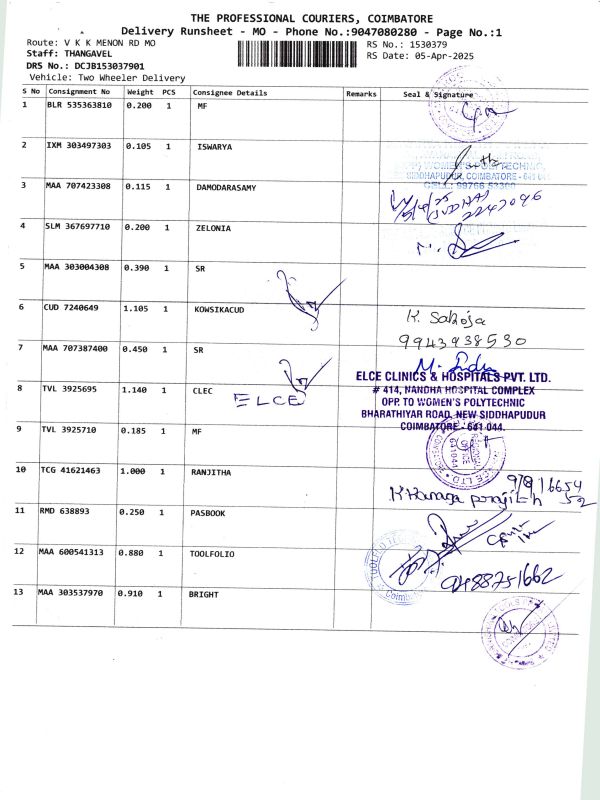 THE PROFESSIONAL COURIERS, COIMBATORE
Delivery Runsheet - MO - Phone No.:9047080280 - Page No.:1
Route: V K K MENON RD MO
RS No.: 1530379
Staff: THANGAVEL
RS Date: 05-Apr-2025
DRS No.: DCJB153037901
Vehicle: Two Wheeler Delivery
S No Consignment No Weight PCS Consignee Details Remarks Seal & Signature
1 BLR 535363810 0.200 1 MF
2 IXM 303497303 0.105 1 ISWARYA
WOMEN'S POLYTECHNIC
SIDDHAPUDUR, COIMBATORE - 641
CELL: 99766 53300
3 MAA 707423308 0.115 1 DAMODARASAMY
4 SLM 367697710 0.200 1 ZELONIA
5 MAA 303004308 0.390 1 SR
6 CUD 7240649 1.105 1 KOWSIKACUD
K. Saroja
9943938530
7 MAA 707387400 0.450 1 SR
ELCE CLINICS & HOSPITALS PVT. LTD.
# 414, NANDHA HOSPITAL COMPLEX
8 TVL 3925695 1.140 1 CLEC
ELCE
OPP. TO WOMEN'S POLYTECHNIC
BHARATHIYAR ROAD, NEW SIDDHAPUDUR
COIMBATORE - 641 044.
9 TVL 3925710 0.185 1 MF
10 TCG 41621463 1.000 1 RANJITHA
11 RMD 638893 0.250 1 PASBOOK
12 MAA 600541313 0.880 1 TOOLFOLIO
9488751662
13 MAA 303537970 0.910 1 BRIGHT